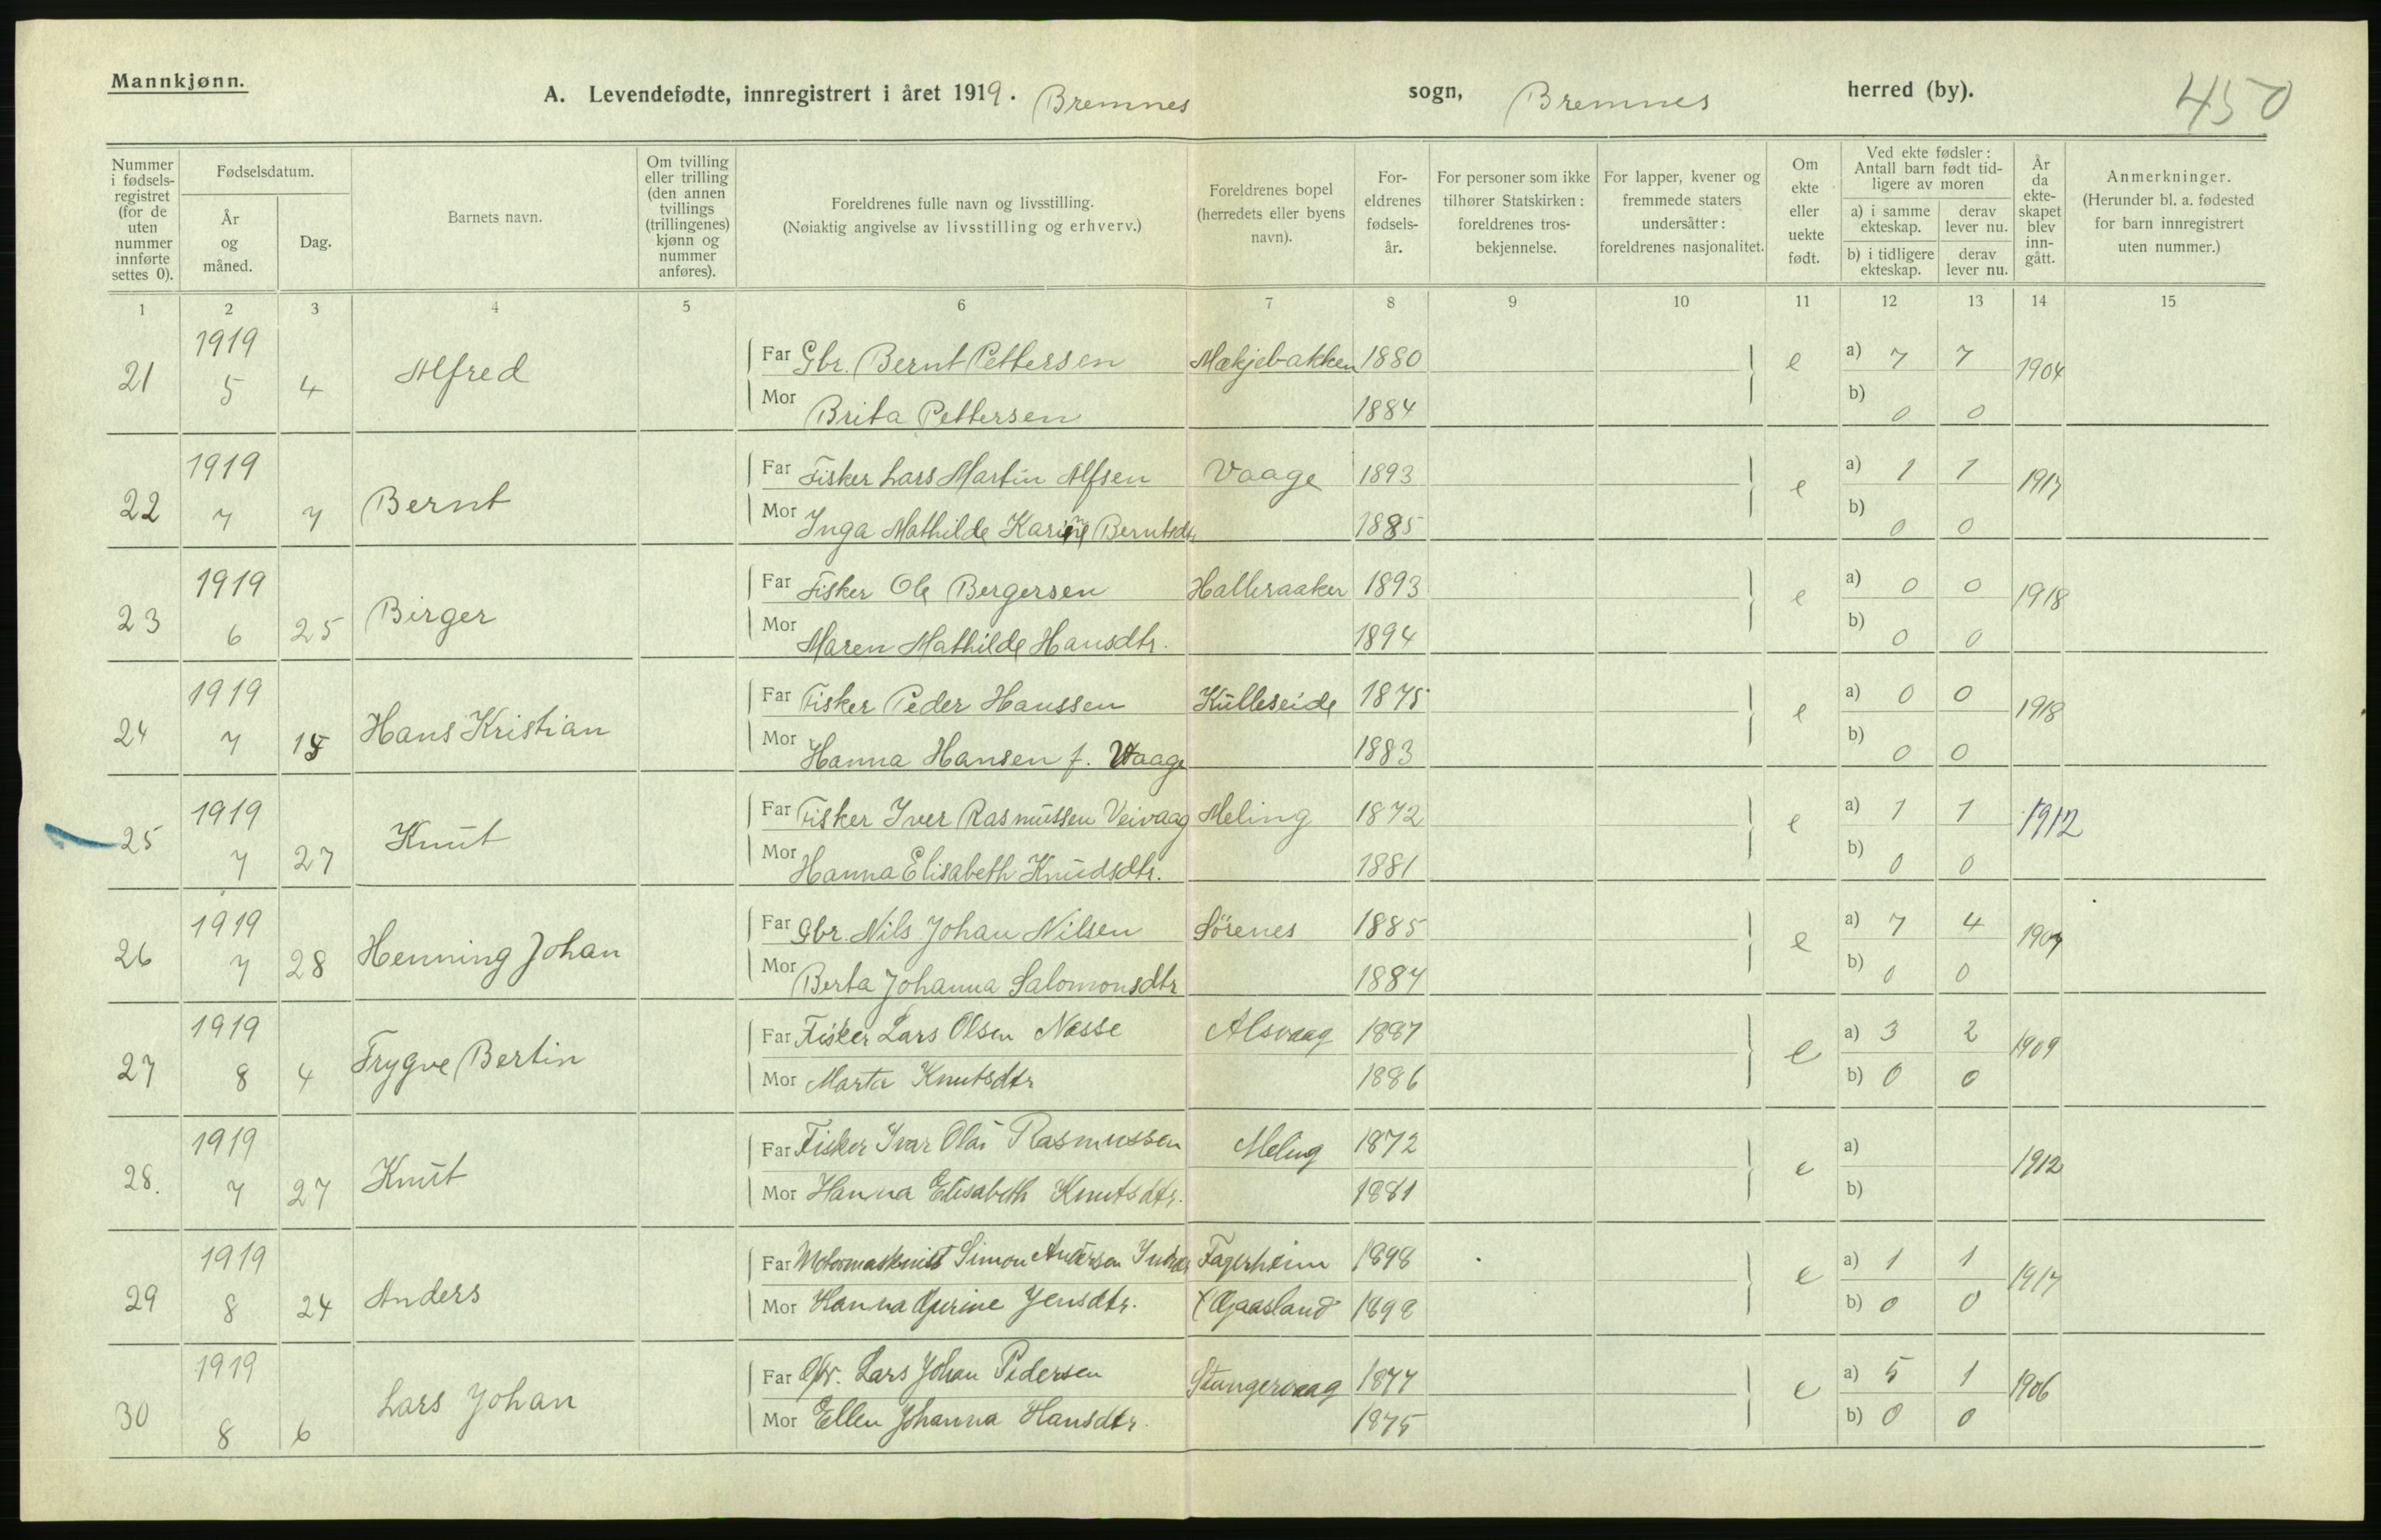 Mannkjønn.
A. Levendefødte, innregistrert i året 1919. Bremnes sogn, Bremnes herred (by). 450
Nummer i fødsels-registret (for de uten nummer innførte settes 0).
Fødselsdatum.
År og måned.
Dag.
Barnets navn.
Om tvilling eller trilling (den annen tvillings (trillingenes) kjønn og nummer anføres).
Foreldrenes fulle navn og livsstilling.
(Nøiaktig angivelse av livsstilling og erhverv.)
Foreldrenes bopel (herredets eller byens navn).
For-eldrenes fødsels-år.
For personer som ikke tilhører Statskirken: foreldrenes tros-bekjennelse.
For lapper, kvener og fremmede staters undersåtter: foreldrenes nasjonalitet.
Om ekte eller uekte født.
Ved ekte fødsler: Antall barn født tid-ligere av moren
a) i samme ekteskap. derav lever nu.
b) i tidligere ekteskap. derav lever nu.
År da ekte-skapet blev inn-gått.
Anmerkninger.
(Herunder bl. a. fødested for barn innregistrert uten nummer.)
1 2 3 4 5 6 7 8 9 10 11 12 13 14 15
21 1919 5 4 Alfred Far Gbr. Bernt Pettersen Mækjebakken 1880 e a) 7 7 1904
Mor Brita Pettersen 1884 b) 0 0
22 1919 7 7 Bernt Far Fisker Lars Martin Alfsen Vaage 1893 e a) 1 1 1917
Mor Inga Mathilde Karine Berntsdtr 1885 b) 0 0
23 1919 6 25 Birger Far Fisker Ole Bergersen Halleraaker 1893 e a) 0 0 1918
Mor Maren Mathilde Hansdtr. 1894 b) 0 0
24 1919 7 15 Hans Kristian Far Fisker Peder Hanssen Kulleseide 1875 e a) 0 0 1918
Mor Hanna Hansen f. Vaage 1883 b) 0 0
25 1919 7 27 Knut Far Fisker Iver Rasmussen Veivaag Meling 1872 e a) 1 1 1912
Mor Hanna Elisabeth Knudsdtr. 1881 b) 0 0
26 1919 7 28 Henning Johan Far Gbr. Nils Johan Nilsen Sörenes 1885 e a) 7 4 1907
Mor Berta Johanna Salomonsdtr 1887 b) 0 0
27 1919 8 4 Trygve Bertin Far Fisker Lars Olsen Nesse Alsvaag 1887 e a) 3 2 1909
Mor Marta Knutsdtr 1886 b) 0 0
28. 1919 7 27 Knut Far Fisker Ivar Olai Rasmussen Meling 1872 e a) 1912
Mor Hanna Elisabeth Knutsdtr. 1881 b)
29 1919 8 24 Anders Far Motormaskinist Simon Andersen Fagerheim 1898 e a) 1 1 1917
Mor Hanna Gurine Jensdtr. Gaasland 1898 b) 0 0
30 1919 8 6 Lars Johan Far Gbr. Lars Johan Pedersen Stangervaag 1877 e a) 5 1 1906
Mor Ellen Johanna Hansdtr. 1875 b) 0 0